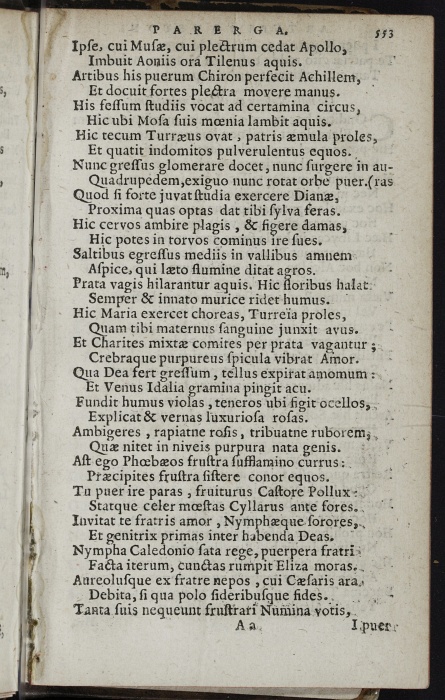 PARERGA. 553
Ipſe, cui Muſæ, cui plectrum cedat Apollo,
Imbuit Aoniis ora Tilenus aquis.
Artibus his puerum Chiron perfecit Achillem,
Et docuit fortes plectra movere manus.
His feſſum ſtudiis vocat ad certamina circus,
Hic ubi Moſa ſuis mœnia lambit aquis.
Hic tecum Turræus ovat, patris æmula proles,
Et quatit indomitos pulverulentus equos.
Nunc greſſus glomerare docet, nunc ſurgere in au-
Quadrupedem, exiguo nunc rotat orbe puer. (ras
Quod ſi forte juvat ſtudia exercere Dianæ,
Proxima quas optas dat tibi ſylva feras.
Hic cervos ambire plagis, & figere damas,
Hic potes in torvos cominus ire ſues.
Saltibus egreſſus mediis in vallibus amnem
Aſpice, qui læto flumine ditat agros.
Prata vagis hilarantur aquis. Hic floribus halat
Semper & innato murice ridet humus.
Hic Maria exercet choreas, Turreïa proles,
Quam tibi maternus ſanguine junxit avus.
Et Charites mixtæ comites per prata vagantur;
Crebraque purpureus ſpicula vibrat Amor.
Qua Dea fert greſſum, tellus expirat amomum:
Et Venus Idalia gramina pingit acu.
Fundit humus violas, teneros ubi figit ocellos,
Explicat & vernas luxurioſa roſas.
Ambigeres, rapiatne roſis, tribuatne ruborem,
Quæ nitet in niveis purpura nata genis.
Aſt ego Phœbæos fruſtra ſufflamino currus:
Præcipites fruſtra ſiſtere conor equos.
Tu puer ire paras, fruiturus Caſtore Pollux:
Statque celer mœſtas Cyllarus ante fores.
Invitat te fratris amor, Nymphæque ſorores,
Et genitrix primas inter habenda Deas.
Nympha Caledonio ſata rege, puerpera fratri
Facta iterum, cunctas rumpit Eliza moras.
Aureoluſque ex fratre nepos, cui Cæſaris ara
Debita, ſi qua polo ſideribuſque fides.
Tanta ſuis nequeunt fruſtrari Numina votis,
Aa I puer